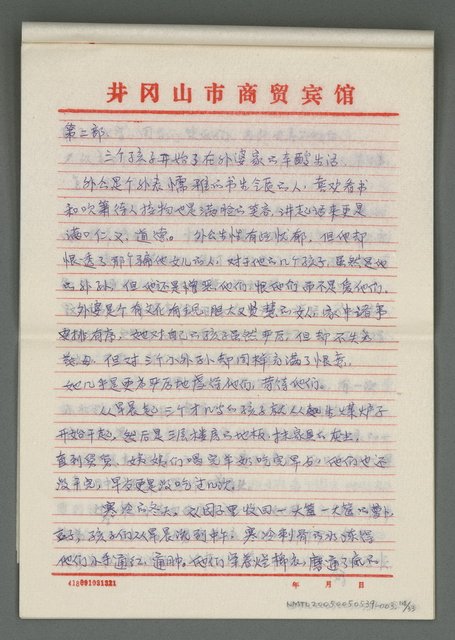 井冈山市商贸宾馆
第二部
三个孩子开始了在外婆家的辛酸生活
外公是个外表儒雅的书生气质的人，喜欢看书
和吹箫待人接物也是满脸的笑容，讲起话来更是
满口仁、义、道德。外公生性有些忧郁，但他却
恨透了那个骗他女儿的人，对于他的几个孩子，虽然是他
的外孙，但他还是憎恶他们，恨他们而不是爱他们。
外婆是个有文化有知识胆大又贤慧的女人，家中诸事
安排有序，她对自己的孩子虽然严厉，但却不失为
慈母，但对三个小外孙却同样充满了恨意，
她几乎是更为严厉地虐待他们，苛待他们。
从早晨起三个才几岁的孩子就从起生煤炉子
开始干起，然后是三层楼房的地板，抹家具的灰尘，
直到货架，姨妈们喝完牛奶吃完早点，他们也还
没干完，早点更是没吃过几次。
寒冷的冬天，从园子里收回一大筐一大筐的萝卜
孩子们从早晨洗到中午，寒冷刺骨的水冻得
他们小手通红，通肿。他们穿着烂棉衣，磨通了底的
418091081321 年 月 日
NMTL20050050539-003, 18/33